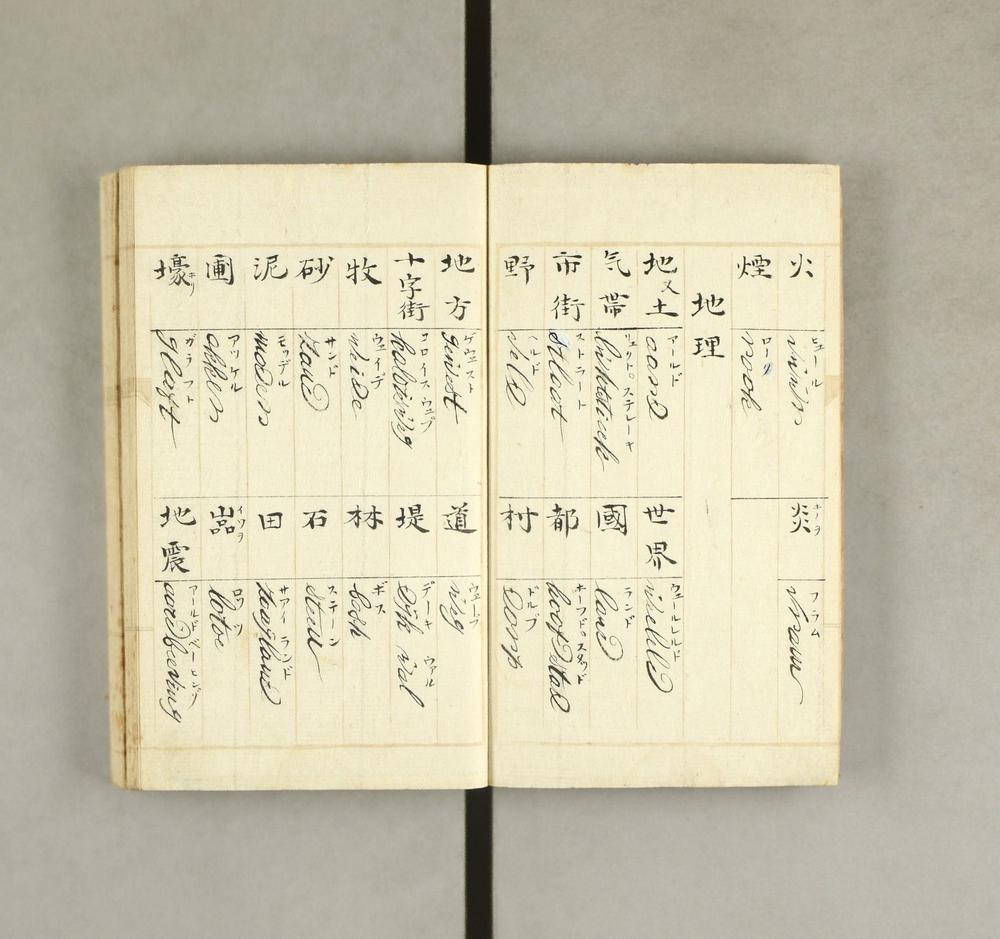 火
ヒュール
煙
ローク
rook
地理
地又土
アールド
aard
気帯
市街
ストラート
straat
野
ヘルド
veld
炎
ホノヲ
フラム
vlam
世界
ウェールレルド
國
ランド
land
都
ホーフド スタッド
hoofdstad
村
ドルプ
dorp
地方
ゲウェスト
gewest
十字街
コロイス ウェグ
牧
ウェイデ
weide
砂
サンド
zand
泥
モッデル
modder
圃
アッケル
akker
壕
ホリ
ガラフト
道
ウェーグ
weg
堤
デーキ ウァル
林
ボス
bosh
石
ステーン
steen
田
サアイ ランド
zaayland
嵒
イワヲ
ロッツ
rotse
地震
アールドベービング
aardbeeving